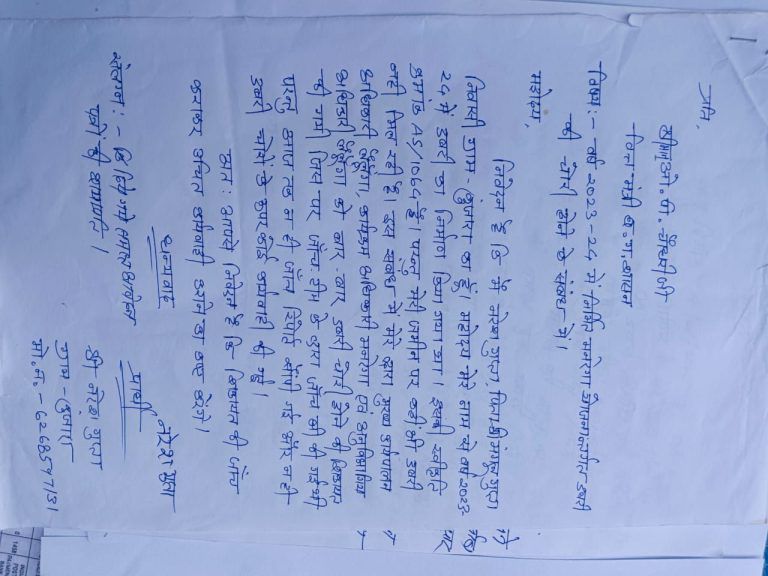 प्रति,
श्रीमान ओ. पी. चौधरी जी
वित्त मंत्री छ. ग. शासन
विषय :- वर्ष 2023-24 में निर्मित मनरेगा योजनान्तर्गत डबरी
की चोरी होने के संबंध में।
महोदय,
निवेदन है कि मैं नरेश गुप्ता, पिता श्री गुप्ता
निवासी ग्राम का हूँ। महोदय मेरे नाम से वर्ष 2023
24 में डबरी का निर्माण किया गया था। इसकी स्वीकृति
क्रमांक AS/1064 है। परन्तु मेरी जमीन पर कहीं भी डबरी
नहीं मिल रही है। इस संबंध में मेरे द्वारा मुख्य कार्यपालन
अधिकारी, कार्यक्रम अधिकारी मनरेगा एवं अनुविभागीय
अधिकारी को बार-बार डबरी चोरी होने की शिकायत
की गयी जिस पर जाँच टीम के द्वारा जाँच की गई थी
परन्तु आज तक न ही जाँच रिपोर्ट सौंपी गई और न ही
डबरी चोरों के ऊपर कोई कार्यवाही की गई।
अतः आपसे निवेदन है कि शिकायत की जाँच
कराकर उचित कार्यवाही करने का कष्ट करेंगे।
धन्यवाद
संलग्न :- कि दिये गये समस्त आवेदन
पत्रों की छायाप्रति।
प्रार्थी
नरेश गुप्ता
श्री नरेश गुप्ता
ग्राम -
मो. नं. - 6268597731